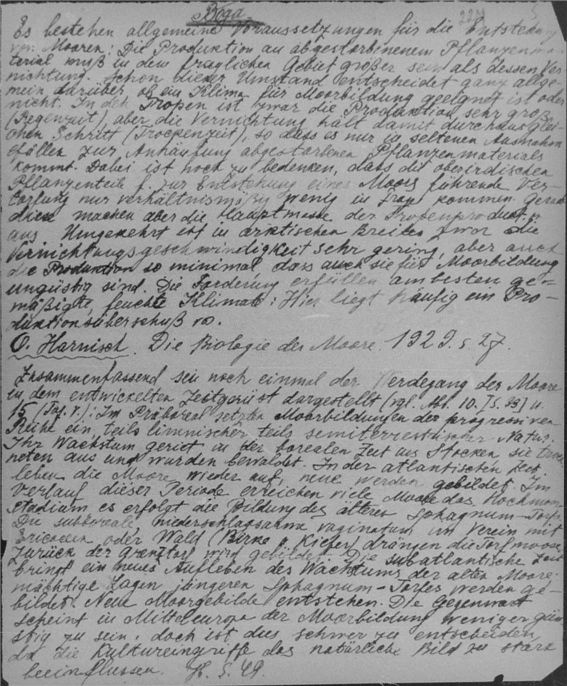 Es bestehen allgemeine Voraussetzungen für die Entstehung
von Mooren: Die Produktion an abgestorbenem Pflanzenma-
terial muß in dem fraglichen Gebiet größer sein als dessen Ver-
nichtung. Schon dieser Umstand entscheidet ganz allge-
mein darüber, ob ein Klima für Moorbildung geeignet ist oder
nicht. In den Tropen ist zwar die Produktion sehr groß
(Regenzeit), aber die Vernichtung hält damit durchaus glei-
chen Schritt (Trockenzeit), so dass es nur in seltenen Ausnahme
fällen zur Anhäufung abgestorbenen Pflanzenmaterials
kommt. Dabei ist noch zu bedenken, dass die oberirdischen
Pflanzenteile f. zur Entstehung eines Moors führende Ver-
torfung nur verhältnismäßig wenig in frag kommen. Gerade
diese machen aber die Hauptmasse der Tropenprodukt.
aus. Umgekehrt ist in arktischen Breiten zwar die
Vernichtungsgeschwindigkeit sehr gering, aber auch
die Produktion so minimal, dass auch sie für Moorbildung
ungünstig sind. Die Forderung erfüllen am besten ge-
mäßigte, feuchte Klimate: Hier liegt häufig ein Pro-
duktionsüberschuß vo.
O. Harnisch. Die Biologie der Moore. 1929. s 27.
Zusammenfassend sei noch einmal der Werdegang der Moore
in dem entwickelten Zeitgerüst dargestellt (vgl. Abb. 10. [S. 23] u.
15 ): Im Präboreal setzen Moorbildungen der progressiven
Reihe ein, teils limnischer teils semiterrestrischer Natur.
Ihr Wachstum geriet in der borealen Zeit ins Stocken sie trock
neten aus und wurden bewaldet. In der atlantischen Zeit
leben die Moore wieder auf, neue werden gebildet. Im
Verlauf dieser Periode erreichen viele Moore das Hochmoor-
stadium es erfolgt die Bildung des älteren Sphagnum-Torfs.
Die subboreale, niederschlagsarme vaginatum im Verein mit
Ericaceen oder Wald (Birke u. Kiefer) drängen die Torfmoose
zurück der Grenztorf wird gebildet. Die subatlantische Zeit
bringt ein neues Aufleben des Wachstums der alten Moore:
mächtige Lagen jüngeren Sphagnum-Torfes werden ge-
bildet. Neue Moorgebilde entstehen. Die Gegenwart
scheint in Mitteleuropa der Moorbildung weniger gün-
stig zu sein, doch ist dies schwer zu entscheiden,
da die Kultureingriffe das natürliche Bild zu stark
beeinflussen. H. S. 49.